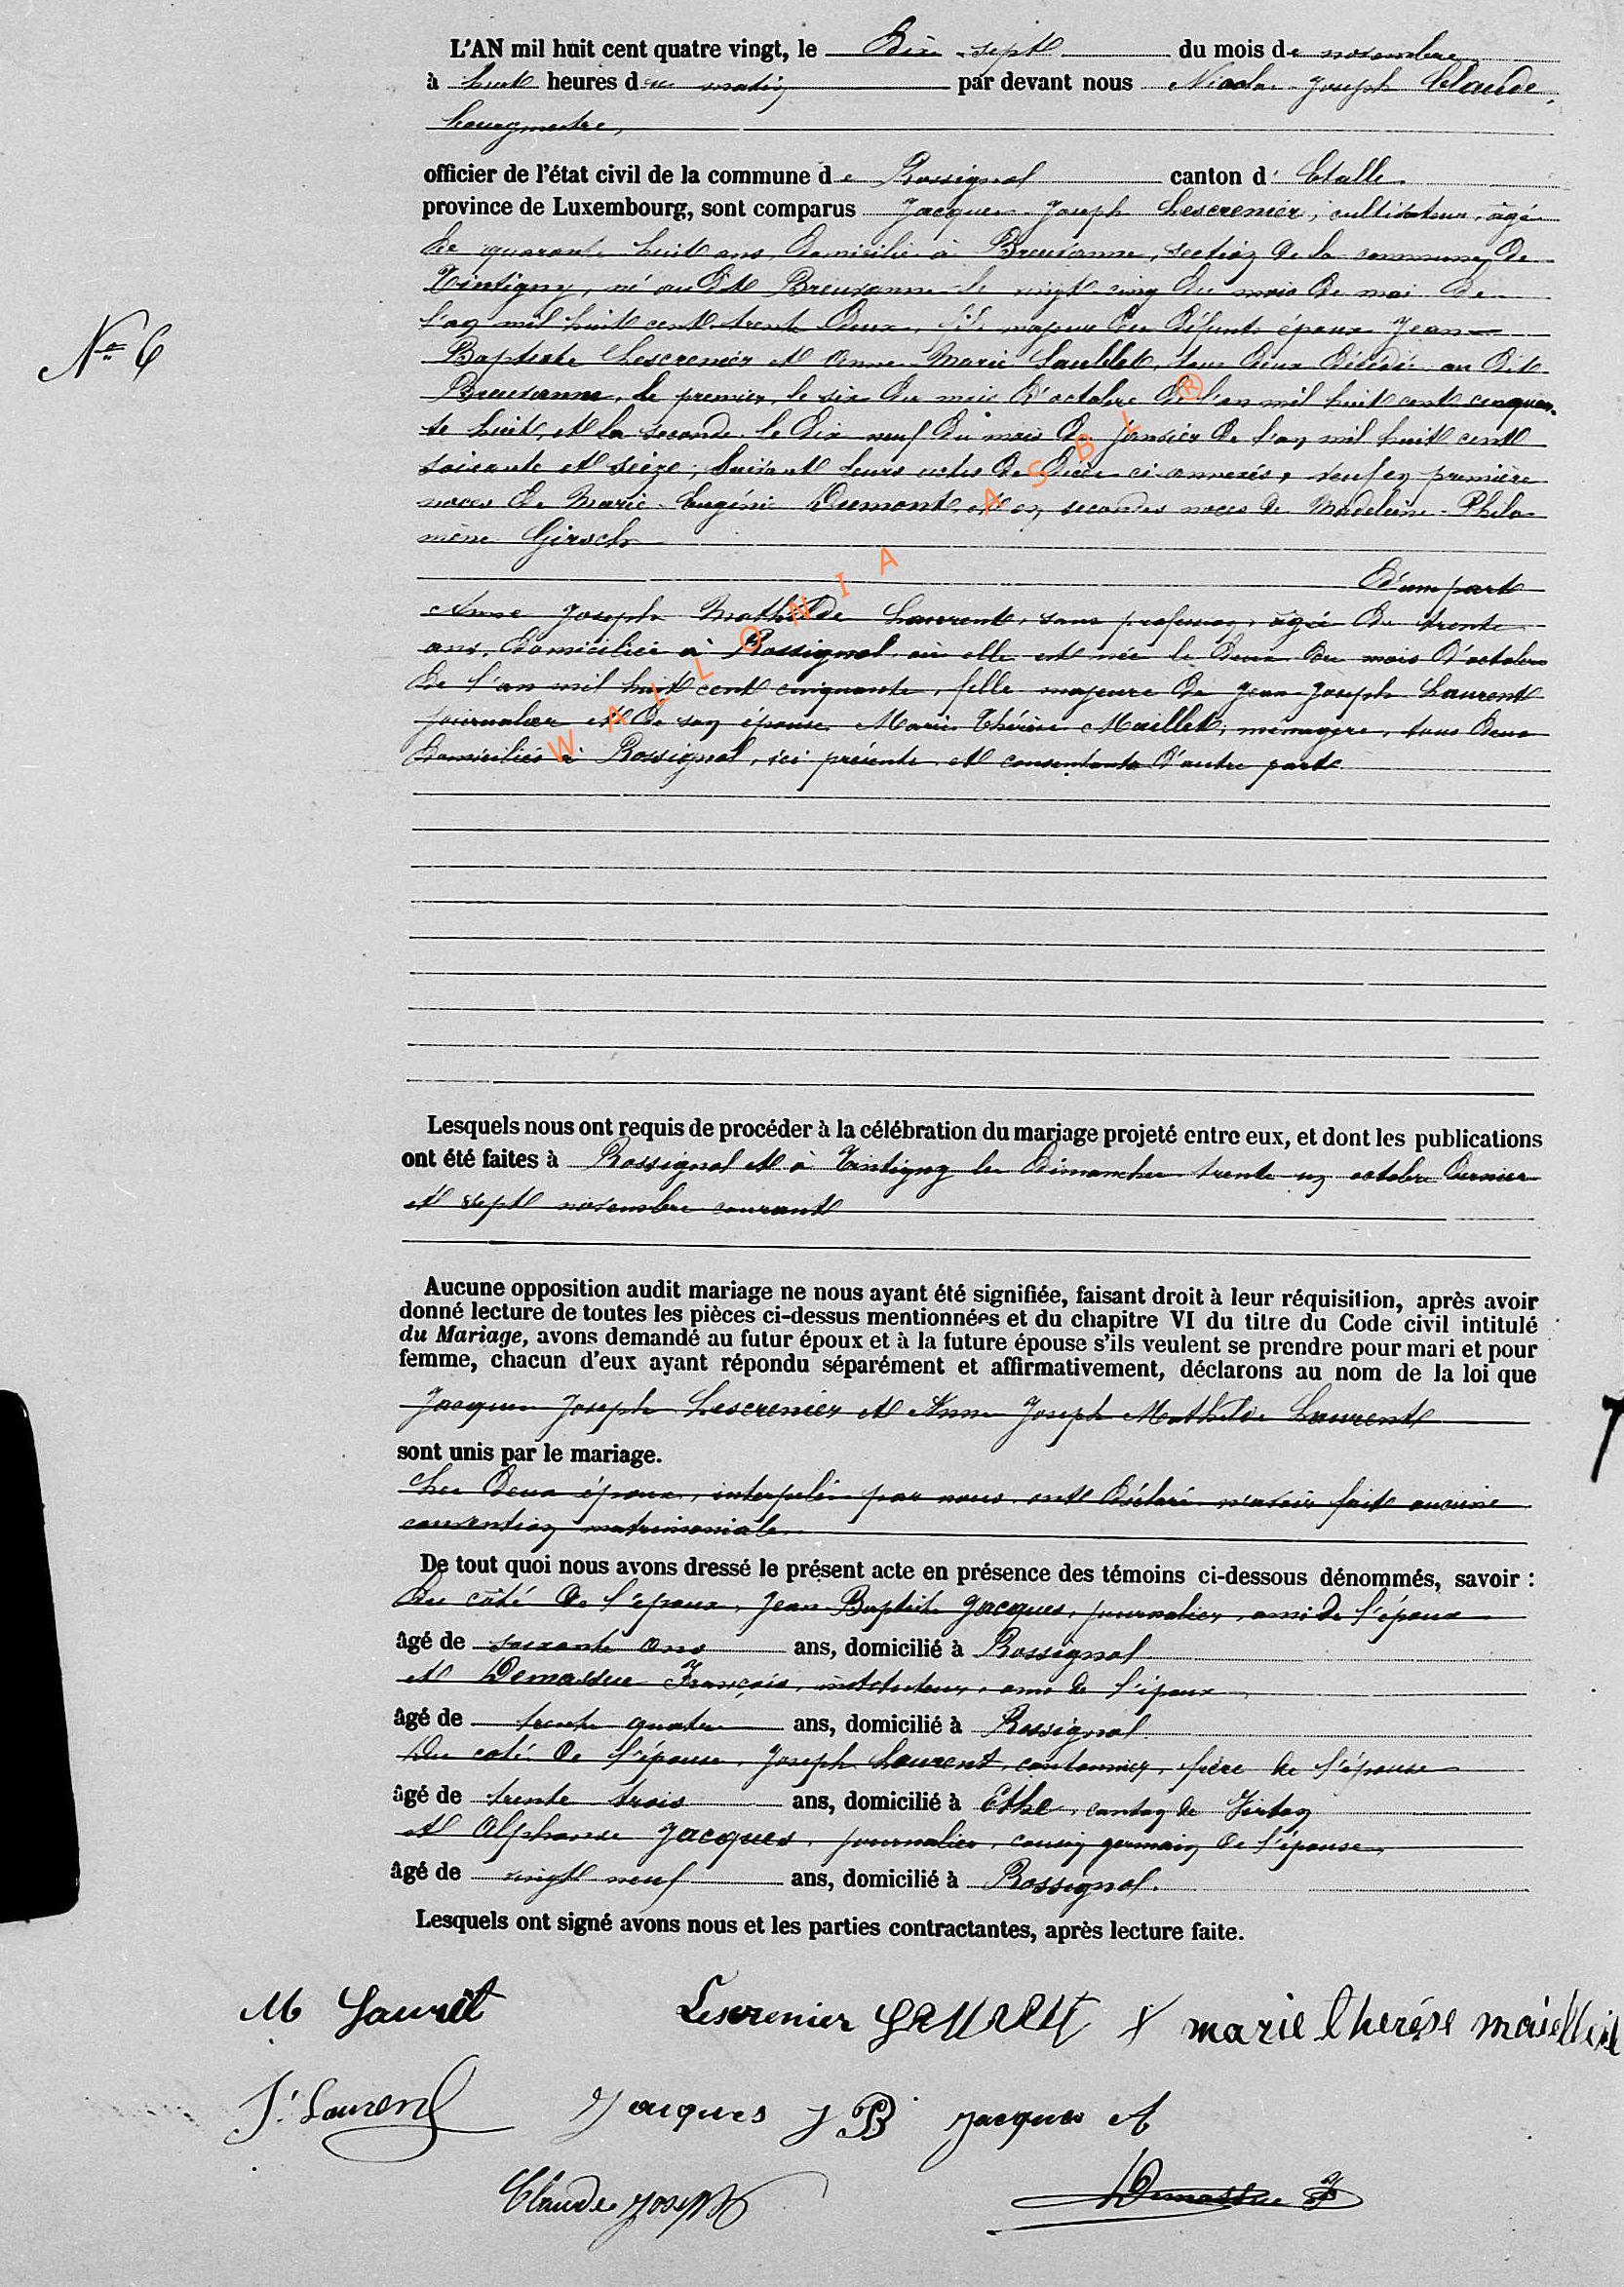 L'AN mil huit cent quatre vingt, le Dix-sept du mois de novembre
à huit heures du matin par devant nous Nicolas-Joseph Claude,
bourgmestre,
officier de l'état civil de la commune de Rossignol canton d'Etalle
province de Luxembourg, sont comparus Jacques-Joseph Lescrenier, cultivateur, âgé
de quarante-huit ans, domicilié à Breuvanne, section de la commune de
Tintigny, né au dit Breuvanne le vingt-cinq du mois de mai de
l'an mil huit cent trente deux, fils majeur des défunts époux Jean-
Baptiste Lescrenier et Anne-Marie Saublet, tous deux décédés au dit
Breuvanne, le premier, le six du mois d'octobre de l'an mil huit cent cinquan-
te huit, et la seconde le dix neuf du mois de janvier de l'an mil huit cent
soixante et seize, suivant leurs actes de décès ci-annexés, veuf en première
noces de Marie-Eugénie Dumont, et en secondes noces de Madeleine-Philo-
mène Girsch
D'une part
Anne Joseph Mathilde Laurent, sans profession, âgée de trente
ans, domiciliée à Rossignol où elle est née le deux du mois d'octobre
de l'an mil huit cent cinquante, fille majeure de Jean-Joseph Laurent
journalier et de son épouse Marie Thérèse Maillet, ménagère, tous deux
domiciliés à Rossignol, ici présents et consentants d'autre part
WALLONIA ASBL ®
N° 6
Lesquels nous ont requis de procéder à la célébration du mariage projeté entre eux, et dont les publications
ont été faites à Rossignol et à Tintigny les dimanches trente-un octobre dernier
et sept novembre courant
Aucune opposition audit mariage ne nous ayant été signifiée, faisant droit à leur réquisition, après avoir
donné lecture de toutes les pièces ci-dessus mentionnées et du chapitre VI du titre du Code civil intitulé
du Mariage, avons demandé au futur époux et à la future épouse s'ils veulent se prendre pour mari et pour
femme, chacun d'eux ayant répondu séparément et affirmativement, déclarons au nom de la loi que
Jacques Joseph Lescrenier et Anne Joseph Mathilde Laurent
sont unis par le mariage.
Les deux époux, interpelés par nous ont déclaré n'avoir fait aucune
convention matrimoniale.
De tout quoi nous avons dressé le présent acte en présence des témoins ci-dessous dénommés, savoir :
Du côté de l'époux, Jean-Baptiste Jacques, journalier, ami de l'époux
âgé de soixante ans ans, domicilié à Rossignol
et Demassue François, instituteur, ami de l'époux
âgé de trente quatre ans, domicilié à Rossignol
Du coté de l'épouse, Joseph Laurent, cantonnier, frère de l'épouse
âgé de trente trois ans, domicilié à Ethe, canton de Virton
et Alphonse Jacques, journalier, cousin germain de l'épouse,
âgé de vingt neuf ans, domicilié à Rossignol.
Lesquels ont signé avons nous et les parties contractantes, après lecture faite.
M Laurent Lescrenier marie thérése maiellet
J. Laurent Jacques J B Jacques A
Claude Joseph Demassue F